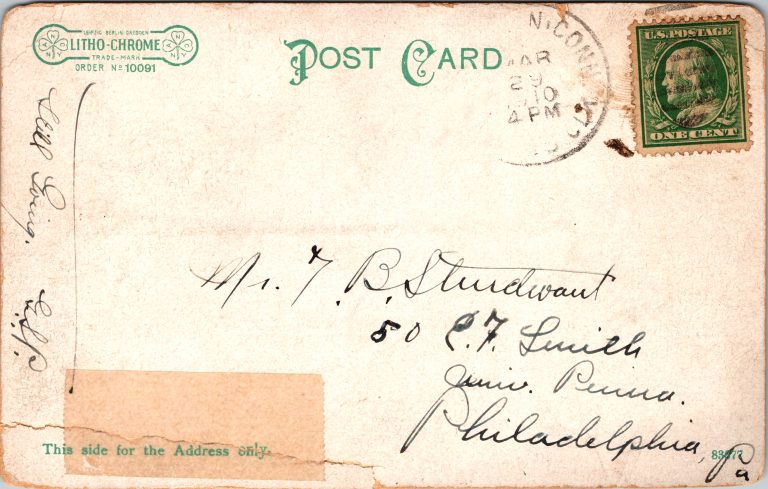 LEIPZIG BERLIN DRESDEN
LITHO-CHROME
TRADE-MARK
ORDER No 10091
POST CARD
N. CONN
MAR
29
4 PM
U.S. POSTAGE
ONE CENT
Still Going.
E.S.P.
Mr. F. B. Sturdwant
50 E. F. Smith
Univ. Penna.
Philadelphia, Pa
This side for the Address only.